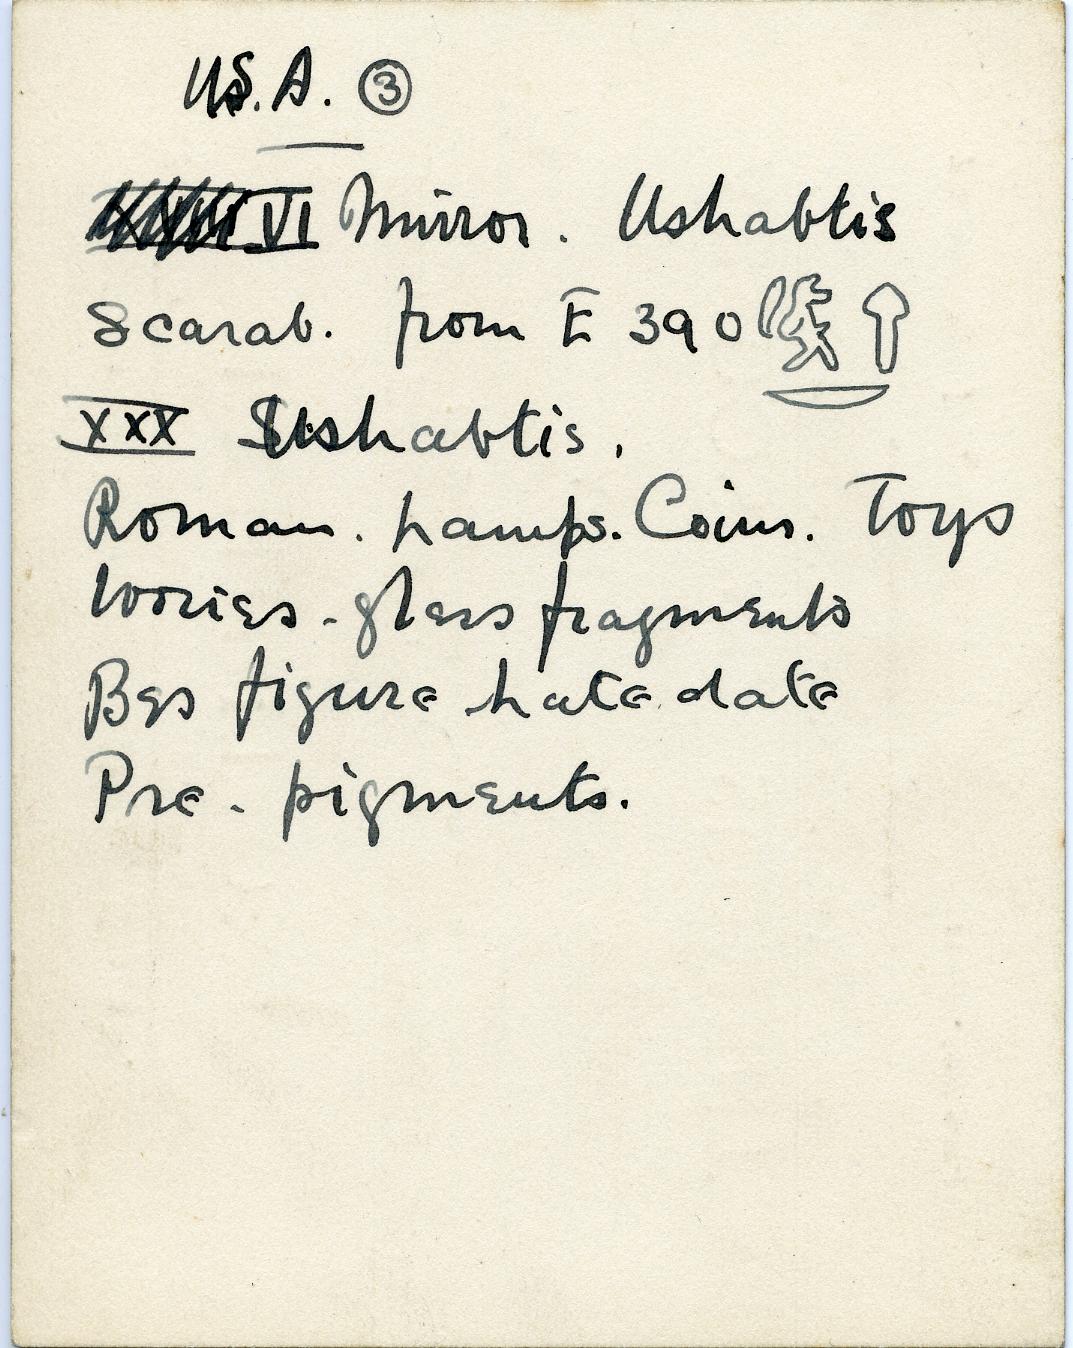 U.S.A. ③
VI Mirror. Ushabtis
Scarab. from E 390
XXX Ushabtis.
Roman. Lamps. Coins. Toys
Ivories - glass fragments
Bes figure Late date
Pre - pigments.